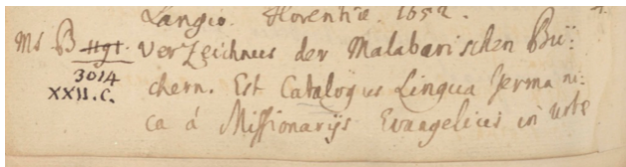 Langio. Florentiæ. 1652.
Ms B Hgt. Verzeichnus der Malabarischen Bü:
3014 chern. Est Catalogus Lingua Germani:
XXII.C. ca á Missionarijs Evangelicis in urbe